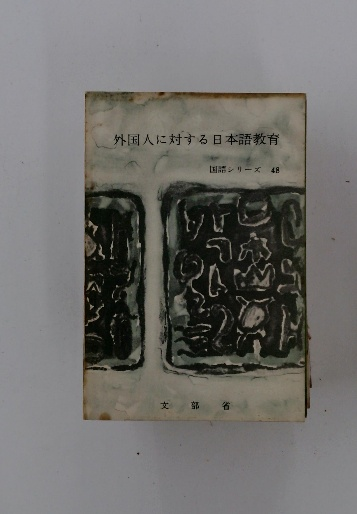 外国人に対する日本語教育
国語シリーズ 48
文部省